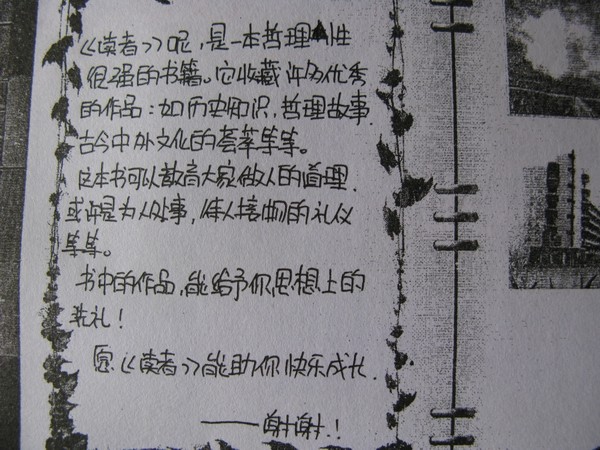 《读者》呢，是一本哲理性
很强的书籍。它收藏许多优秀
的作品：如历史知识，哲理故事，
古今中外文化的荟萃等等。
这本书可以教育大家做人的道理，
或许是为人处事，待人接物的礼仪
等等。
书中的作品，能给予你思想上的
洗礼！
愿《读者》能助你快乐成长.
——谢谢.！